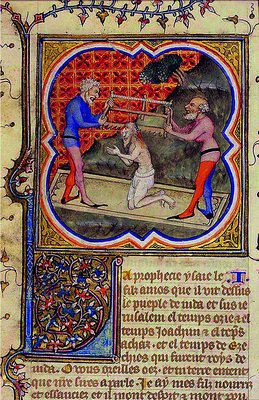 A prophecie ysaie le
filz amos que il vit dessus
le pueple de iuda et sus ie
rusalem el temps ozie et el
temps Joachim et el teps
achaz. et el temps de Eze
chies qui furent roys de
iuda. O vous oreilles oez. et tu terre entent
que nre sires aparle. Je ay mes filz nourri
et essauciez et il mont despit a mont